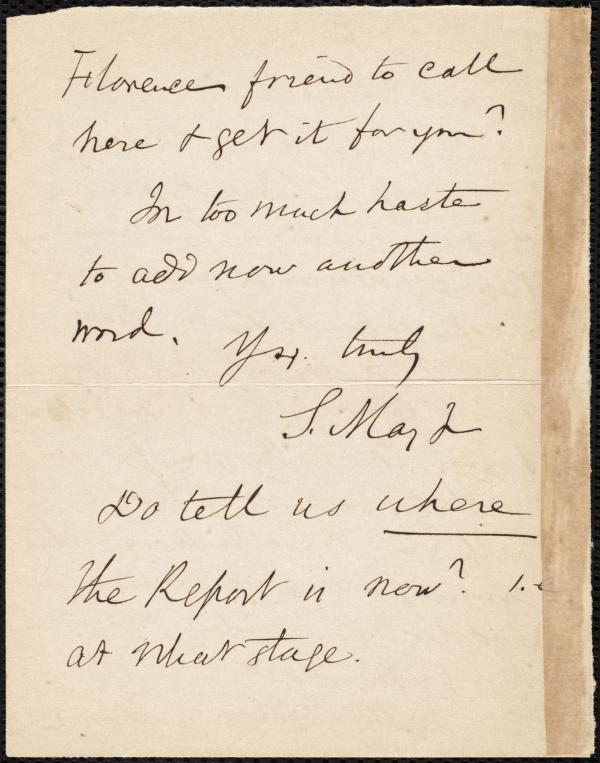 Florence friend to call
here & get it for you?
In too much haste
to add now another
word.
Yrs. truly
S. May Jr
Do tell us where
the Report is now? i.e
at what stage.